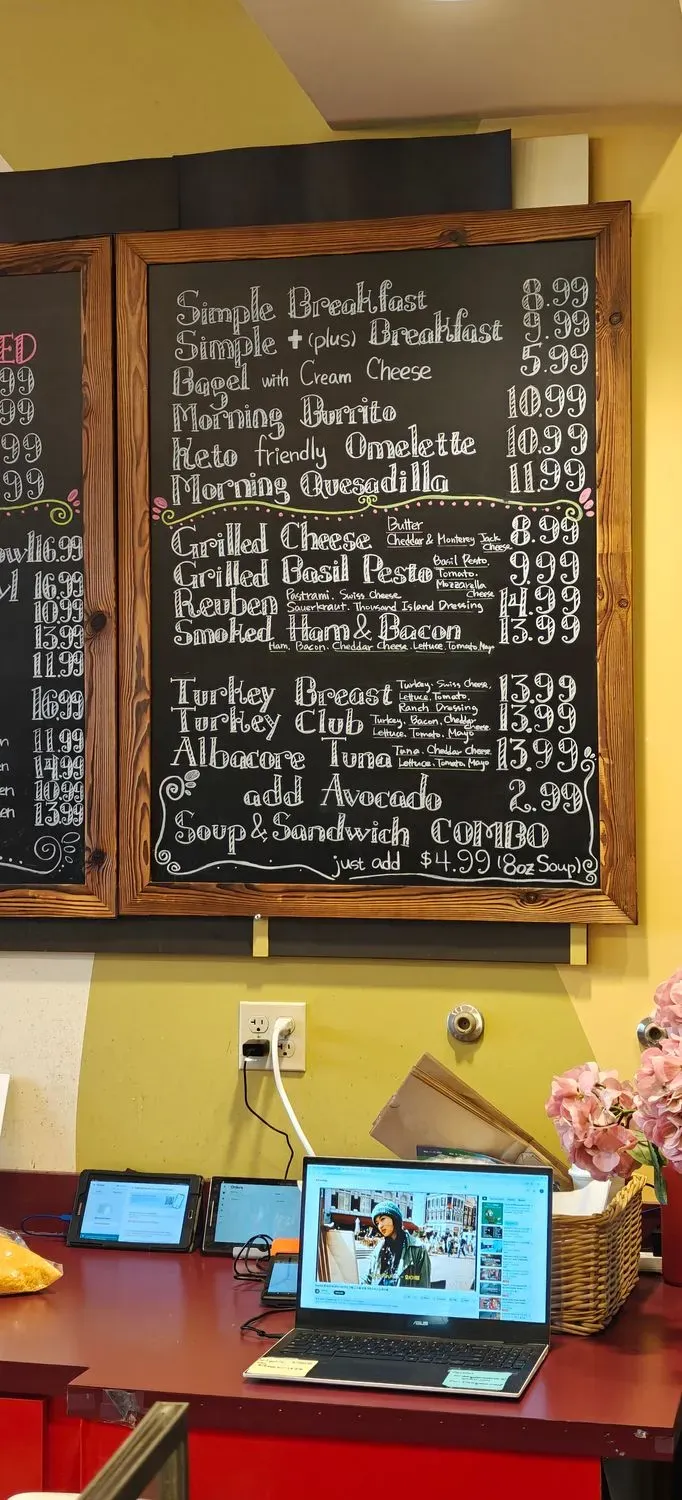 ED
99
99
99
99
owl 16.99
16.99
10.99
13.99
11.99
16.99
11.99
14.99
10.99
13.99
Simple Breakfast 8.99
Simple + (plus) Breakfast 9.99
Bagel with Cream Cheese 5.99
Morning Burrito 10.99
Keto friendly Omelette 10.99
Morning Quesadilla 11.99
Grilled Cheese Butter 8.99
Cheddar & Monterey Jack
Cheese
Grilled Basil Pesto Basil Pesto, 9.99
Tomato,
Mozzarella
Cheese
Reuben Pastrami, Swiss Cheese, 14.99
Sauerkraut, Thousand Island Dressing
Smoked Ham & Bacon 13.99
Ham, Bacon, Cheddar Cheese, Lettuce, Tomato, Mayo
Turkey Breast Turkey, Swiss Cheese, 13.99
Lettuce, Tomato,
Ranch Dressing
Turkey Club Turkey, Bacon, Cheddar 13.99
Cheese
Lettuce, Tomato, Mayo
Albacore Tuna Tuna, Cheddar Cheese 13.99
Lettuce, Tomato, Mayo
add Avocado 2.99
Soup & Sandwich COMBO
just add $4.99 (8oz Soup)
Orders
ASUS